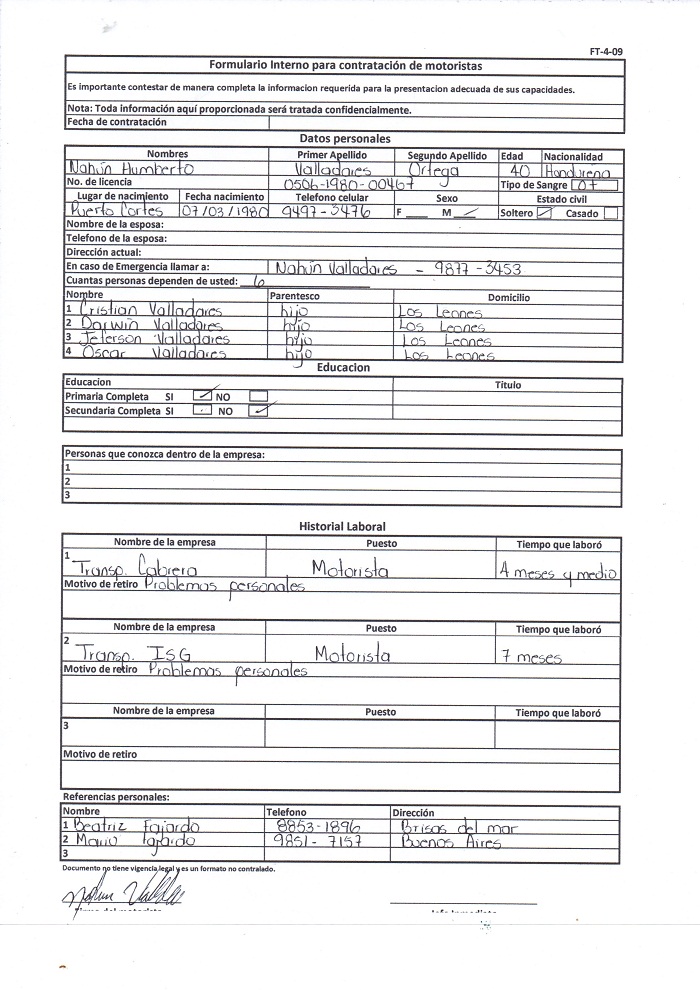 FT-4-09
Formulario Interno para contratación de motoristas
Es importante contestar de manera completa la informacion requerida para la presentacion adecuada de sus capacidades.
Nota: Toda información aquí proporcionada será tratada confidencialmente.
Fecha de contratación
Datos personales
Nombres Primer Apellido Segundo Apellido Edad Nacionalidad
Nahún Humberto Valladares Ortega 40 Hondureña
No. de licencia 0506-1980-00467 Tipo de Sangre O+
Lugar de nacimiento Fecha nacimiento Telefono celular Sexo Estado civil
Puerto Cortes 07/03/1980 9497-3476 F M Soltero Casado
Nombre de la esposa:
Telefono de la esposa:
Dirección actual:
En caso de Emergencia llamar a: Nahún Valladares - 9877-3453
Cuantas personas dependen de usted: 6
Nombre Parentesco Domicilio
1 Cristian Valladares hijo Los Leones
2 Darwin Valladores hijo Los Leones
3 Jeferson Valladares hijo Los Leones
4 Oscar Valladares hijo Los Leones
Educacion
Educacion Título
Primaria Completa SI NO
Secundaria Completa SI NO
Personas que conozca dentro de la empresa:
1
2
3
Historial Laboral
Nombre de la empresa Puesto Tiempo que laboró
1 Transp. Cabrera Motorista 4 meses y medio
Motivo de retiro Problemas personales
Nombre de la empresa Puesto Tiempo que laboró
2 Transp. ISG Motorista 7 meses
Motivo de retiro Problemas personales
Nombre de la empresa Puesto Tiempo que laboró
3
Motivo de retiro
Referencias personales:
Nombre Telefono Dirección
1 Beatriz Fajardo 8853-1896 Brisas del mar
2 Mario Fajardo 9851-7157 Buenos Aires
3
Documento no tiene vigencia legal y es un formato no contralado.